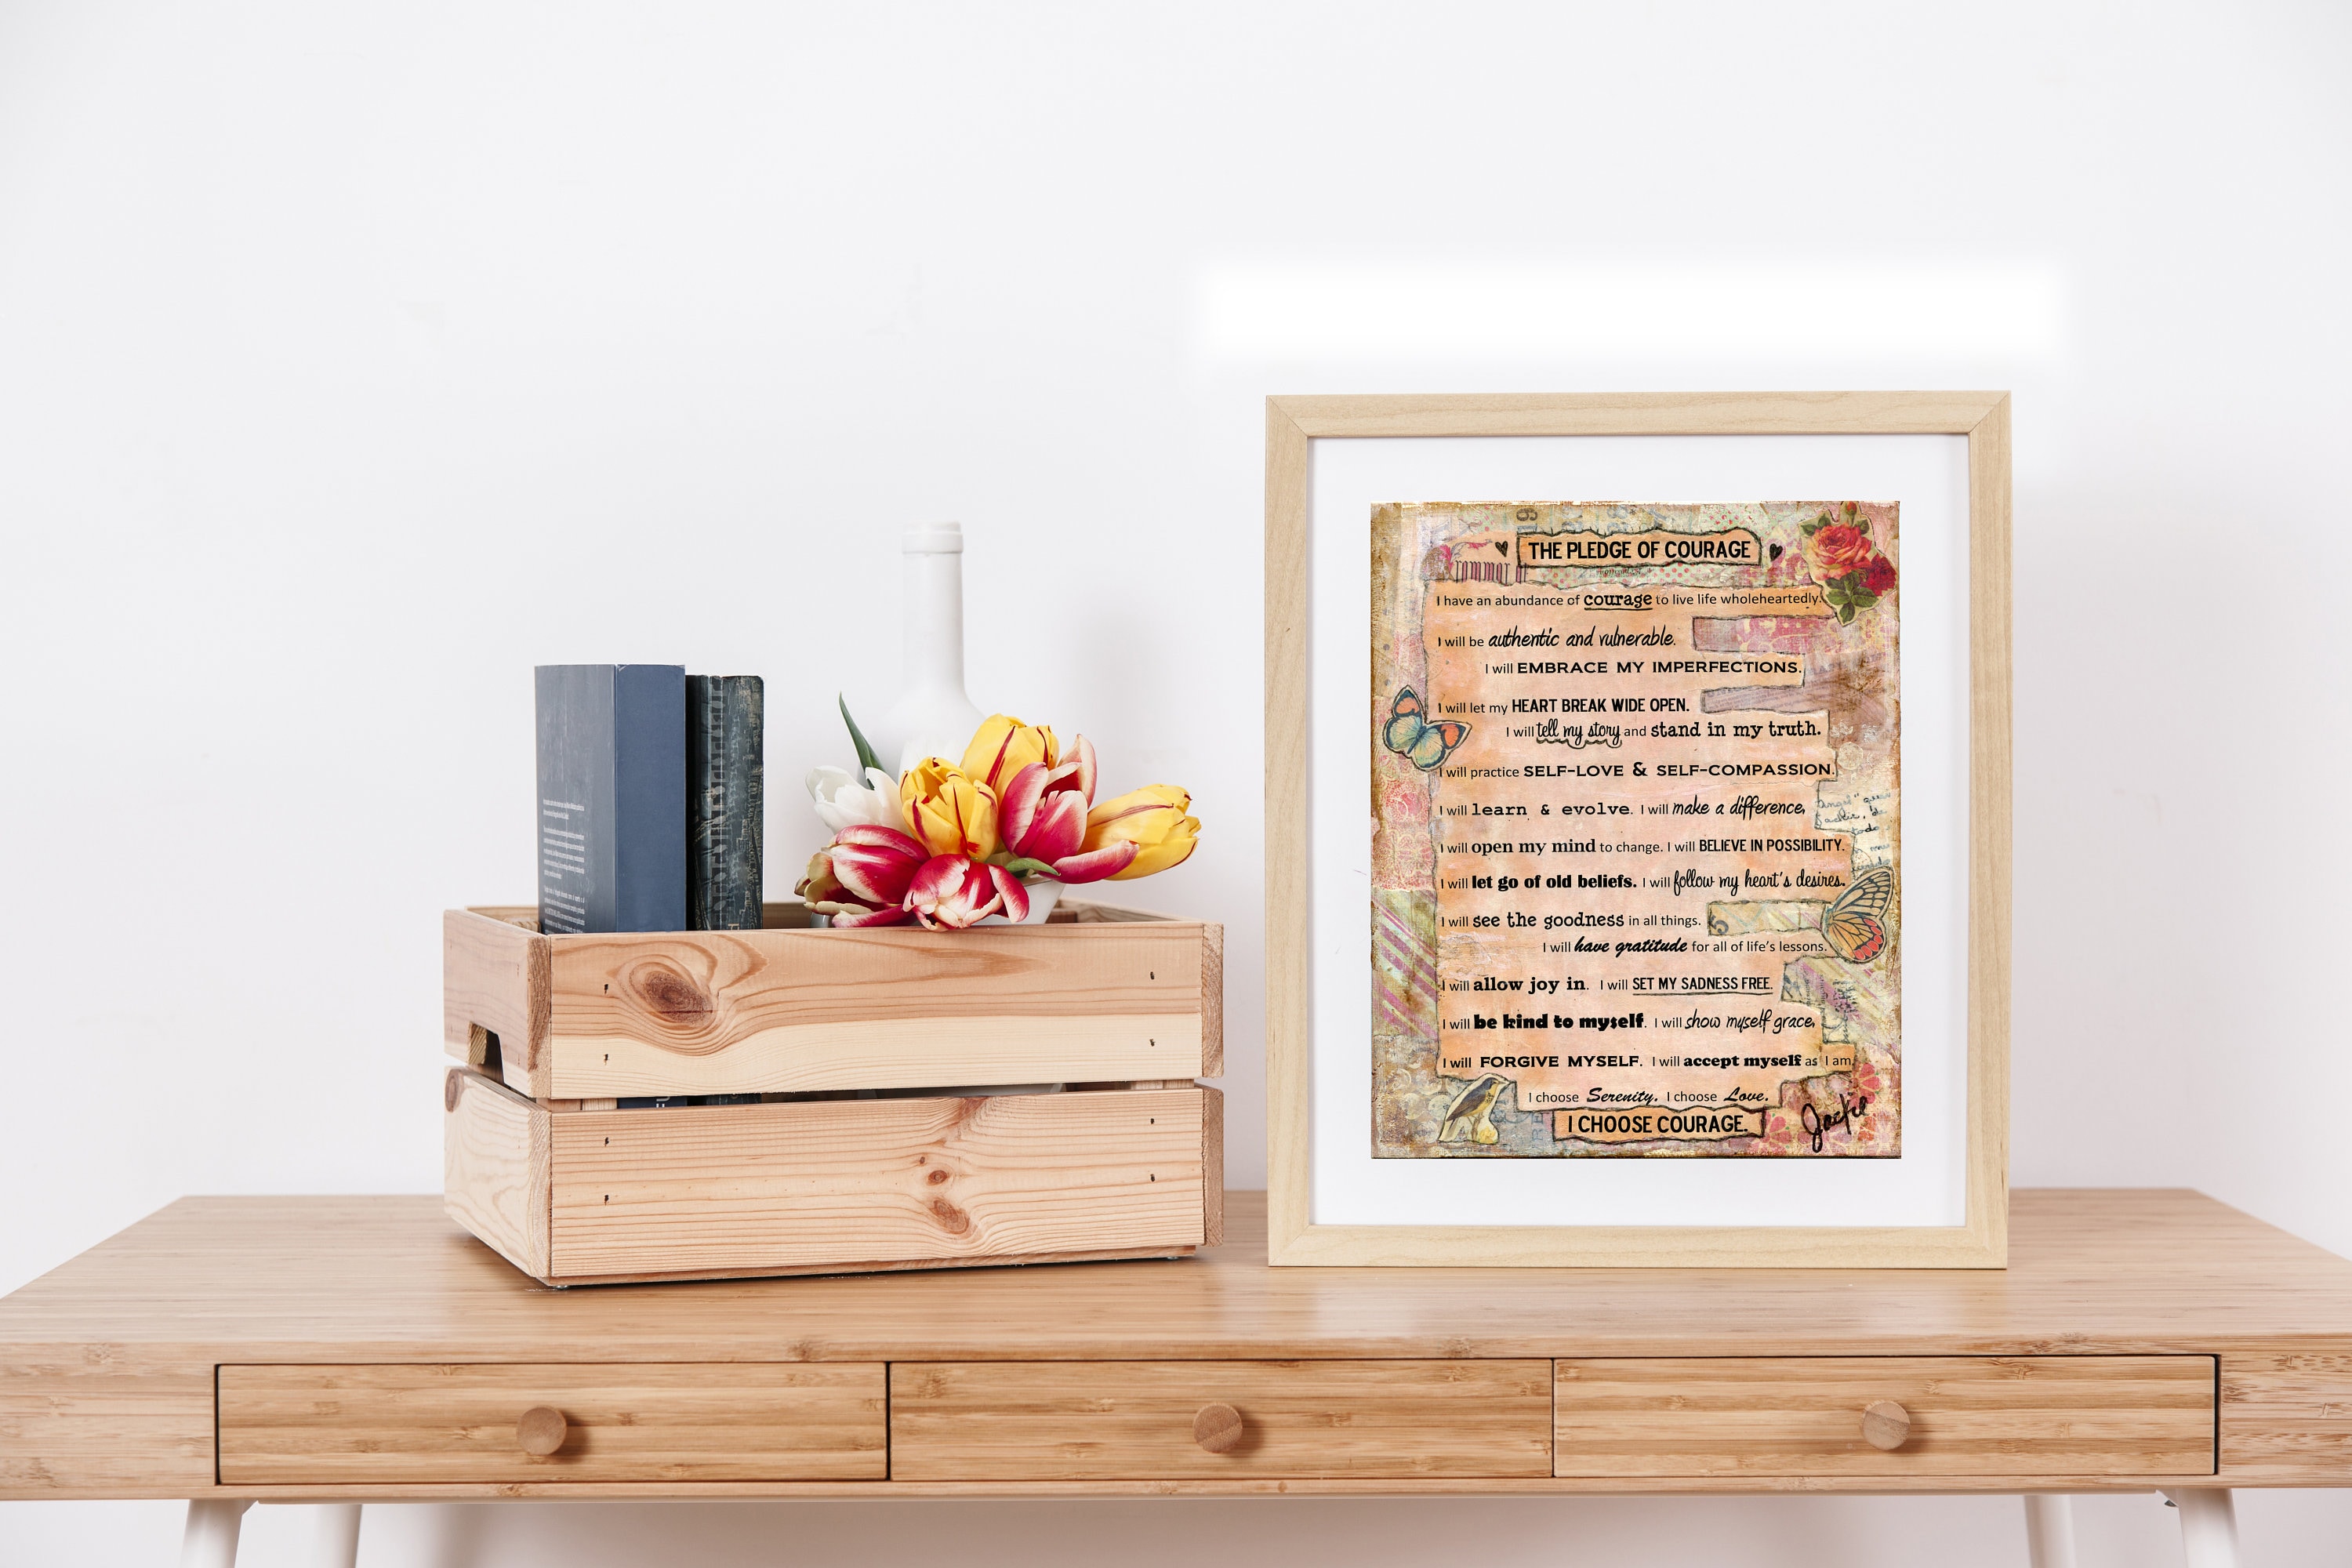 THE PLEDGE OF COURAGE
I have an abundance of courage to live life wholeheartedly.
I will be authentic and vulnerable.
I will EMBRACE MY IMPERFECTIONS.
I will let my HEART BREAK WIDE OPEN.
I will tell my story and stand in my truth.
I will practice SELF-LOVE & SELF-COMPASSION.
I will learn & evolve. I will make a difference.
I will open my mind to change. I will BELIEVE IN POSSIBILITY.
I will let go of old beliefs. I will follow my heart's desires.
I will see the goodness in all things.
I will have gratitude for all of life's lessons.
I will allow joy in. I will SET MY SADNESS FREE.
I will be kind to myself. I will show myself grace.
I will FORGIVE MYSELF. I will accept myself as I am.
I choose Serenity. I choose Love.
I CHOOSE COURAGE.
Jackie